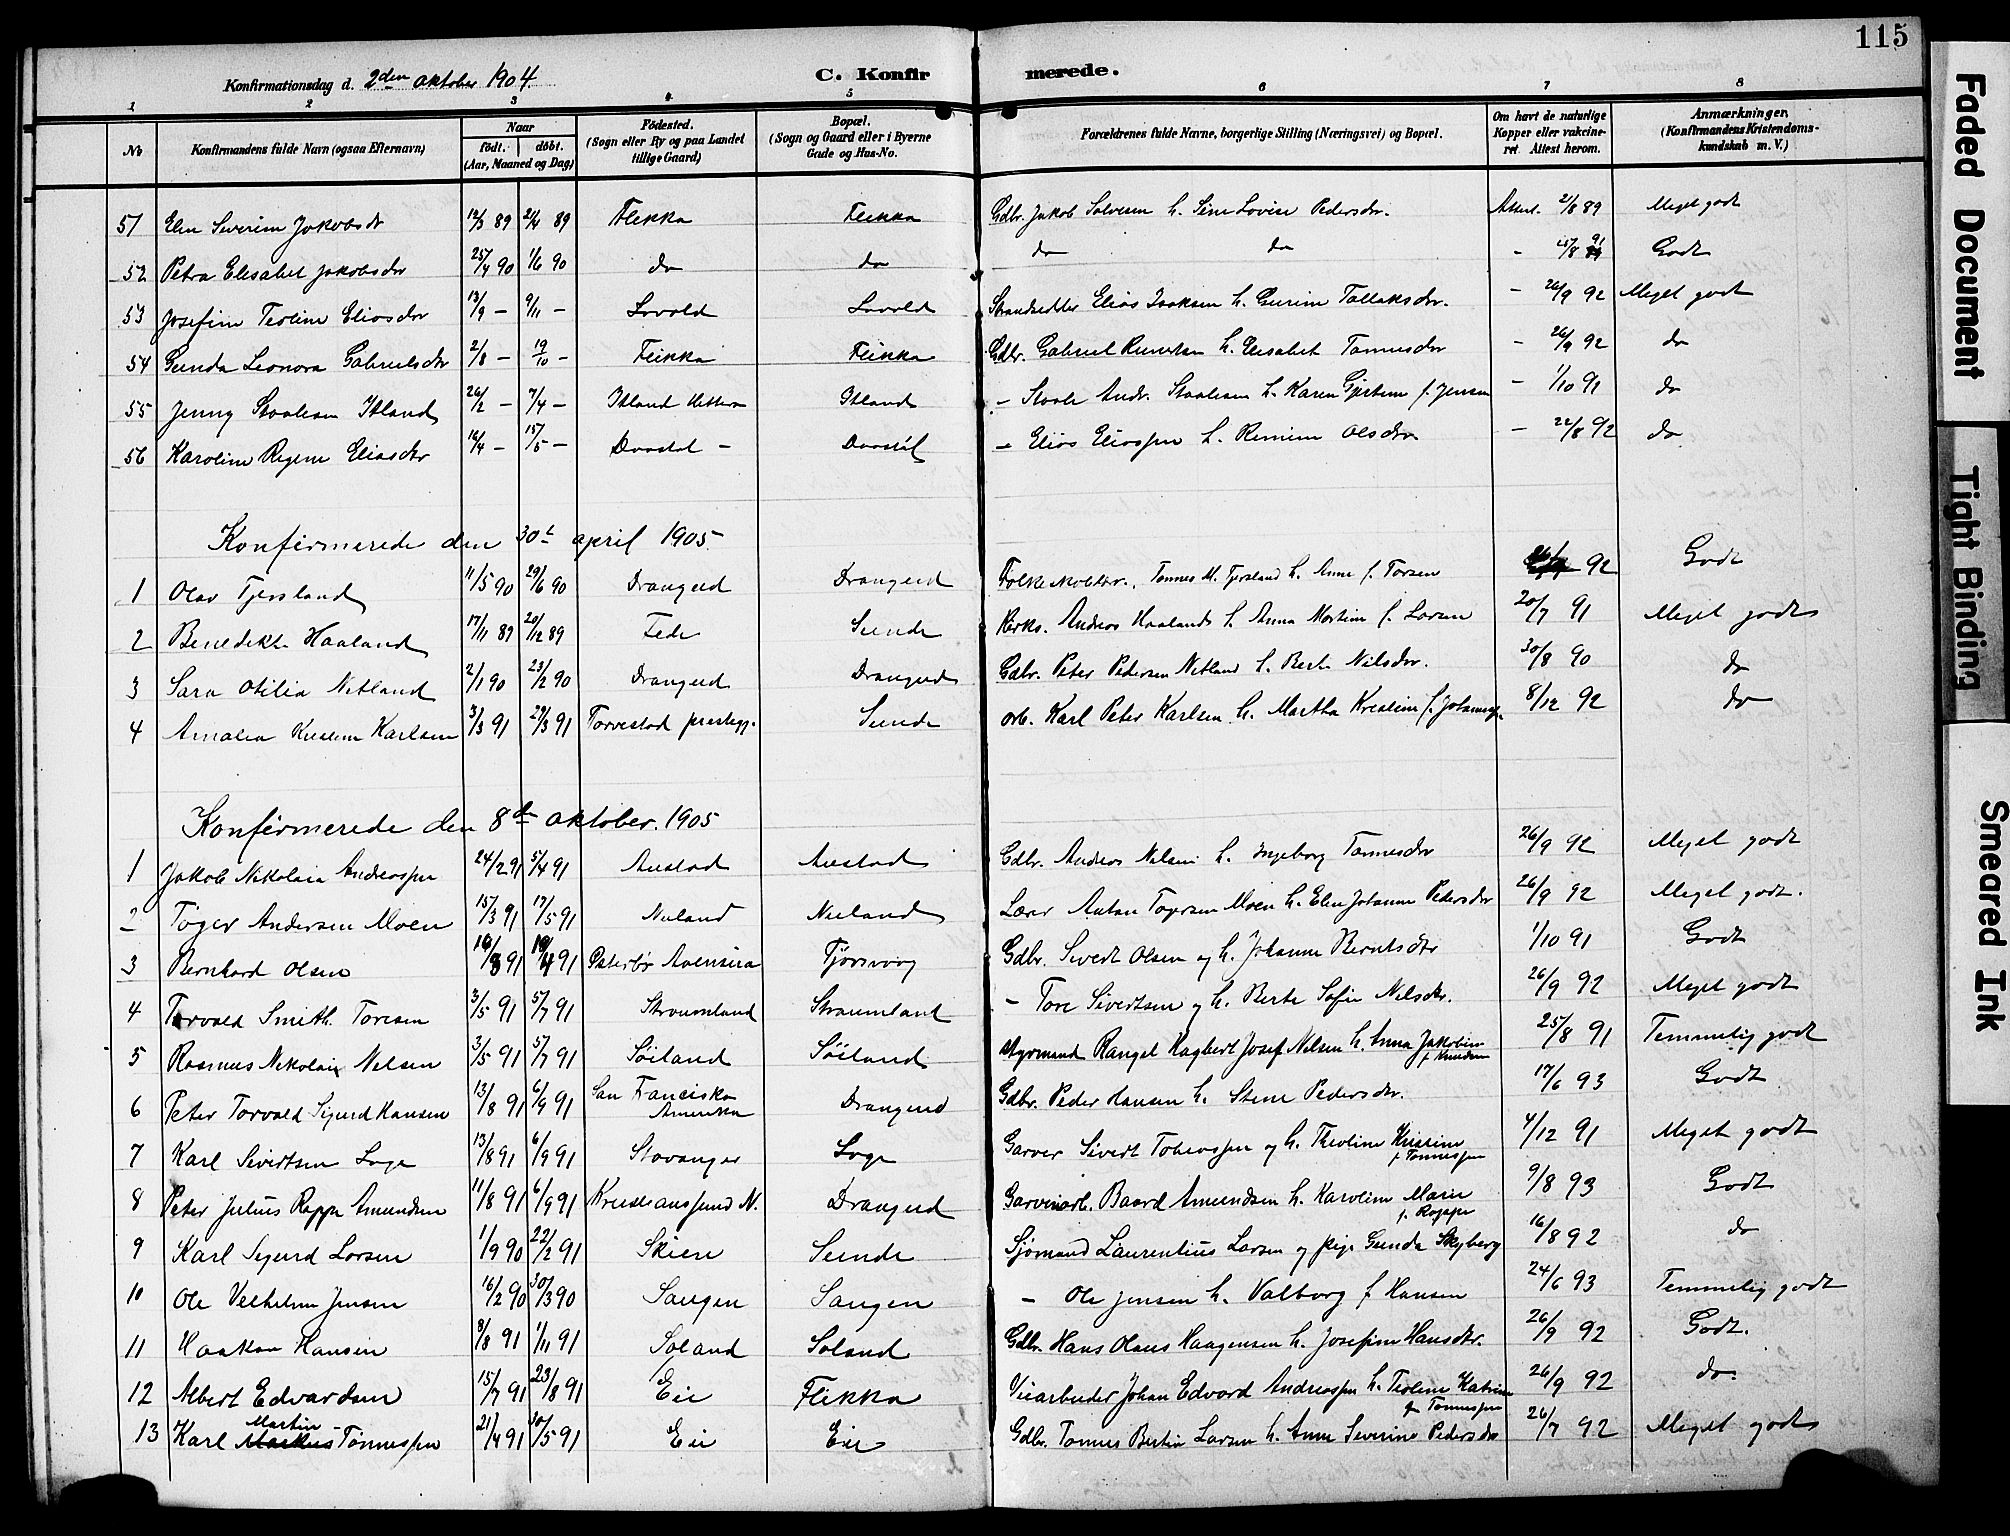 115
Konfirmationsdag d. 2den oktober 1904.
C. Konfirmerede.
1 2 3 4 5 6 7 8
No
Konfirmandens fulde Navn (ogsaa Efternavn)
Naar
født. døbt.
(Aar, Maaned og Dag)
Fødested.
(Sogn eller By og paa Landet
tillige Gaard)
Bopæl.
(Sogn og Gaard eller i Byerne
Gade og Hus-No.
Forældrenes fulde Navne, borgerlige Stilling (Næringsvei) og Bopæl.
Om havt de naturlige
Kopper eller vakcine-
ret. Attest herom.
Anmærkninger.
(Konfirmandens Kristendoms-
kundskab m. V.)
51 Elen Severine Jakobsdr 12/3 89 21/4 89 Flikka Flikka Gdbr. Jakob Salvesen h. Sine Lovise Pedersdr. Attest. 2/8 89 Meget godt
52 Petra Elisabet Jakobsdr 25/4 90 1/6 90 do do do do - 15/8 91 Godt
53 Josefine Teoline Eliasdr 13/9 - 9/11 - Lovold Lovold Strandsidder Elias Isaksen h. Gurine Tollaksdr. - 26/9 92 Meget godt
54 Gunda Leonora Gabrielsdr 2/8 - 19/10 - Flikka Flikka Gdbr. Gabriel h. Elisabet Tønnesdr - 26/9 92 do
55 Jenny Staalesen Itland 26/2 - 7/4 - Itland Hitterø Itland - Staale Andr. Staalesen h. Karen f. Jensen - 1/10 91 do
56 Karoline Regine Eliasdr 16/4 - 15/5 - Daastøl - Daastøl - Elias Eliassen h. Olsdr. - 22/8 92 do
Konfirmerede den 30te april 1905.
1 Olav Tjersland 11/5 90 29/6 90 Drangeid Drangeid Folkeskoler., Tønnes M. Tjersland h. Anne f. Torsen 92 Godt
2 Benedikte Haaland 17/11 89 20/12 89 Fede Sunde Kirks. Andreas Haaland h. Anna Martine f. Larsen 20/7 91 Meget godt
3 Sara Otilia Netland 2/1 90 23/2 90 Drangeid Drangeid Gdbr. Peter Pedersen Netland h. Berte Nilsdr. 30/8 90 do
4 Amalia Kristine Karlsen 3/3 91 29/3 91 Torvestad prestegj. Sunde Arb. Karl Peter Karlsen h. Martha Kristine f. Johannesen 8/12 92 do
Konfirmerede den 8de oktober. 1905
1 Jakob Nikolai Andreassen 24/2 91 5/4 91 Austad Austad Gdbr. Andreas Nilsen h. Ingeborg Tønnesdr 26/9 92 Meget godt
2 Tøger Andersen Moen 15/3 91 17/5 91 Nuland Nuland Lærer Anton Tøgersen Moen h. Elen Johanne Pedersdr 26/9 92 Meget godt.
3 Bernhard Olsen 16/3 91 19/4 91 Tjørsvaag Gdbr. Sivert Olsen og h. Johanne Berntsdr 1/10 91 Godt
4 Torvald Smith. Toresen 3/5 91 5/7 91 Straumland Straumland - Tore Sivertsen og h. Berte Sofie Nilsdr. 26/9 92 Meget godt
5 Rasmus Nikolai Nelsen 3/5 91 5/7 91 Søiland Søiland Styrmand Rangel Hagbert Josef Nelsen h. Anna Jakobine f. Knudsen 25/8 91 Temmelig godt
6 Peter Torvald Sigurd Hansen 13/8 91 6/9 91 San Francisko Amerika Drangeid Gdbr. Peder Hansen h. Stine Pedersdr. 17/6 93 Godt
7 Karl Sivertsen Loge 13/8 91 6/9 91 Stavanger Loge Garver Sivert Tobiassen og h. Theoline Kristine f. Tønnessen 4/12 91 Meget godt
8 Peter Julius Roppe Amundsen 11/8 91 6/9 91 Kristianssund N. Drangeid Garveriarb. Baard Amundsen h. Karoline Marie f. Roppe 9/8 93 Godt
9 Karl Sigurd Larsen 1/9 90 22/2 91 Skien Sunde Sjømand Laurentius Larsen og pige Gunda Skyberg 16/8 92 do
10 Ole Vilhelm Jensen 16/2 90 30/3 90 Saugen Saugen - Ole Jensen h. Valborg f Hansen 24/6 93 Temmelig godt
11 Haakon Hansen 8/8 91 1/11 91 Soland Soland Gdbr. Hans Olaus Haagensen h. Josefine Hansdr. 26/9 92 Godt.
12 Albert Edvardsen 15/7 91 23/8 91 Eie Flikka Veiarbeider Johan Edvard Andreassen h. Teoline Katrine f Tønnessen 26/9 92 do
13 Karl Martin Markus Tønnessen 21/4 91 30/5 91 Eie Eie Gdbr. Tønnes Bertin Larsen h. Anne Severine Pedersdr 26/7 92 Meget godt
Faded Document
Tight Binding
Smeared Ink